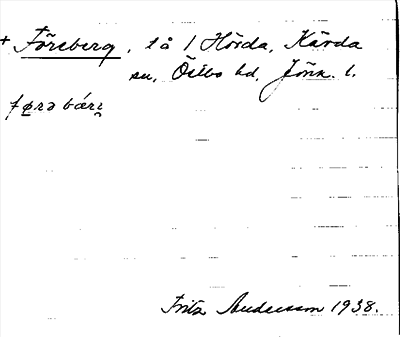 + Föreberg, tå 1 Hörda, Kärda
sn, Östbo hd, Jönk. l.
førəbárɩ
Fritz Andersson 1938.